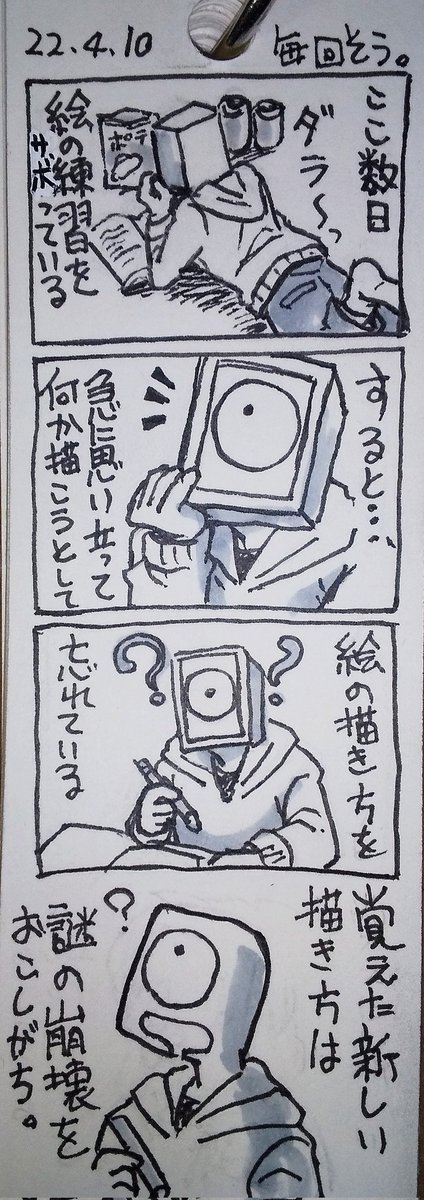 22.4.10
毎回そう。
ここ数日
ダラ〜っ
ポテ
絵の練習を
サボっている
すると…
急に思い立って
何か描こうとして
絵の描き方を
?
?
忘れている
覚えた新しい
描き方は
?
謎の山崩壊を
おこしがち。